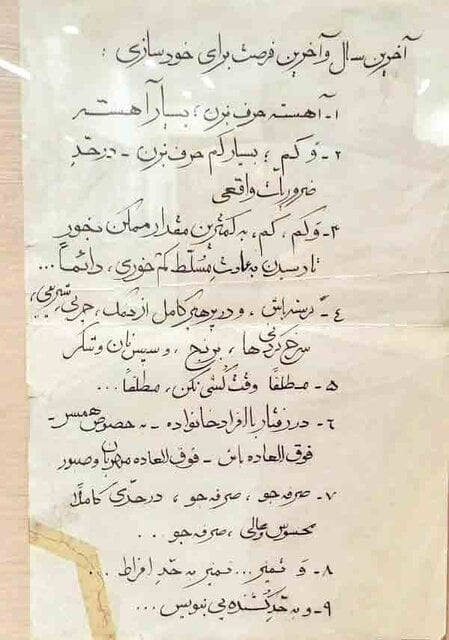 آخرین سال و آخرین فرصت برای خودسازی :
۱- آهسته حرف بزن ؛ بسیار آهسته
۲- وَ کم ؛ بسیار کم حرف بزن - در حدِ
ضروریات واقعی
۳- وَ کم ، کم ، به کمترین مقدار ممکن بخور
تا رسیدن به عادتِ مُسلّط کم خوری ، دائماً ...
٤- گرسنه باش ، و در پرهیز کامل از نمک ، چربی ،
سرخ کردنی ها ، برنج ، و سپس نان و شکر
۵- مطلقاً وقت کُشی نکن ، مطلقاً ...
۶- در رفتار با افراد خانواده - به خصوص همسر -
فوق العاده باش - فوق العاده مهربان و صبور
۷- صرفه جو ، صرفه جو ، در حدّی کاملاً
محسوس و عالی ، صرفه جو . . .
۸- وَ تمیز ... تمیز به حدِ افراط ...
۹- و به حدِ کُشنده یی بنویس ...